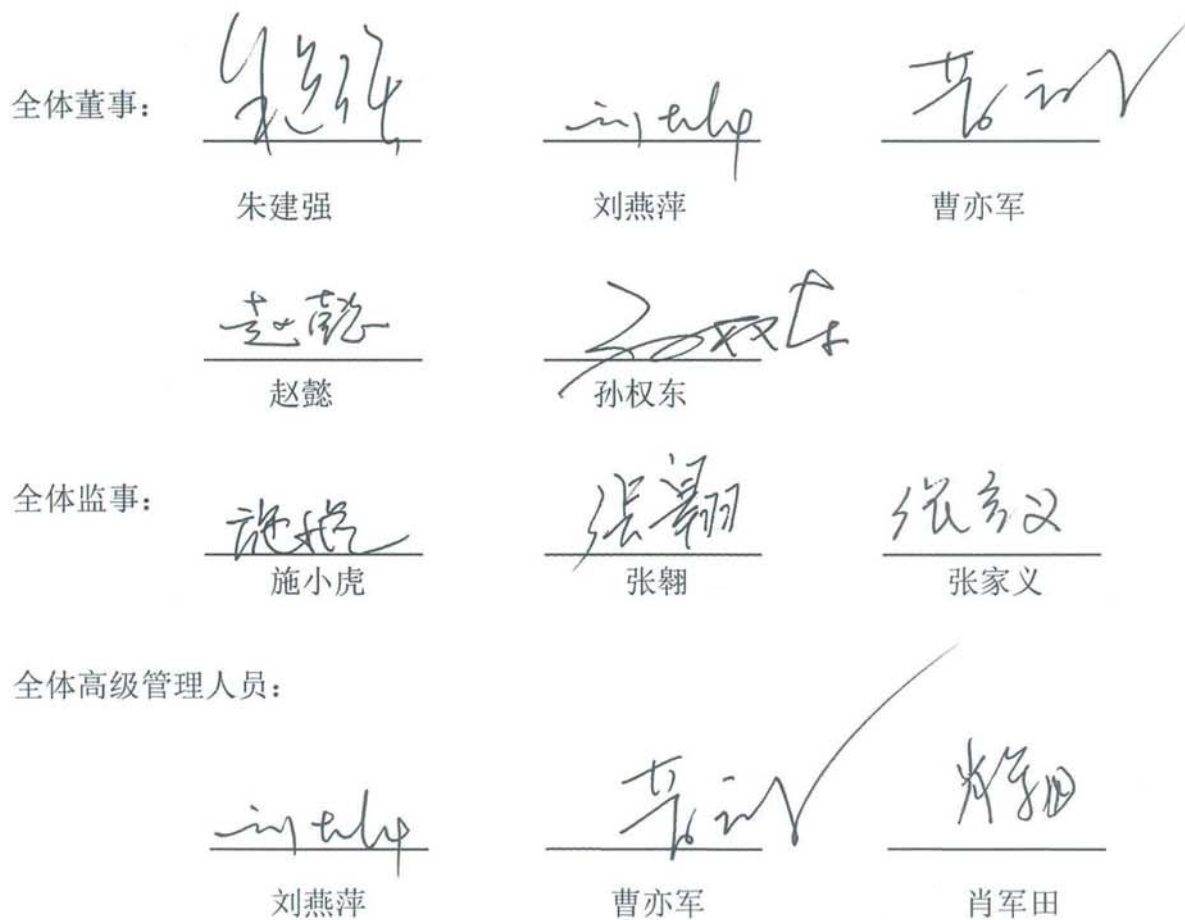 全体董事：
朱建强 刘燕萍 曹亦军
赵懿 孙权东
赵懿 孙权东
全体监事：
张翱 张家义
施小虎 张翱 张家义
全体高级管理人员：
刘燕萍 曹亦军 肖军田